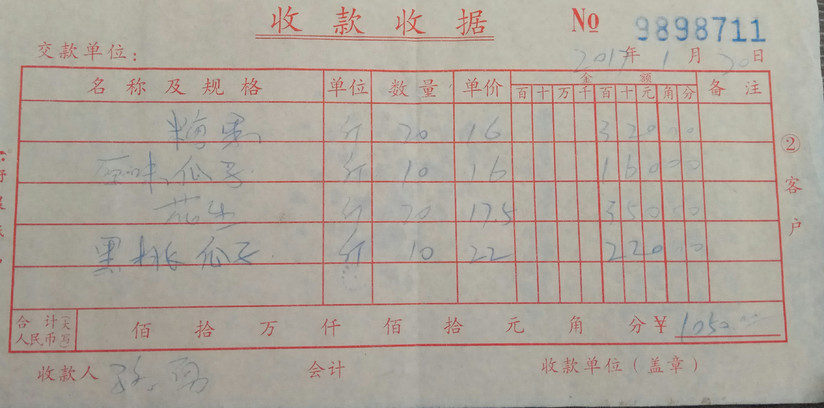 收款收据 № 9898711
交款单位: 2017年1月20日
名称及规格 单位 数量 单价 金额 备注
百 十 万 千 百 十 元 角 分
糖果 斤 20 16 32000
原味瓜子 斤 10 16 16000
花生 斤 20 17.5 35000
黑桃瓜子 斤 10 22 22000
②客户
合计人民币(大万) 佰 拾 万 仟 佰 拾 元 角 分 ¥ 1050.00
收款人 会计 收款单位(盖章)